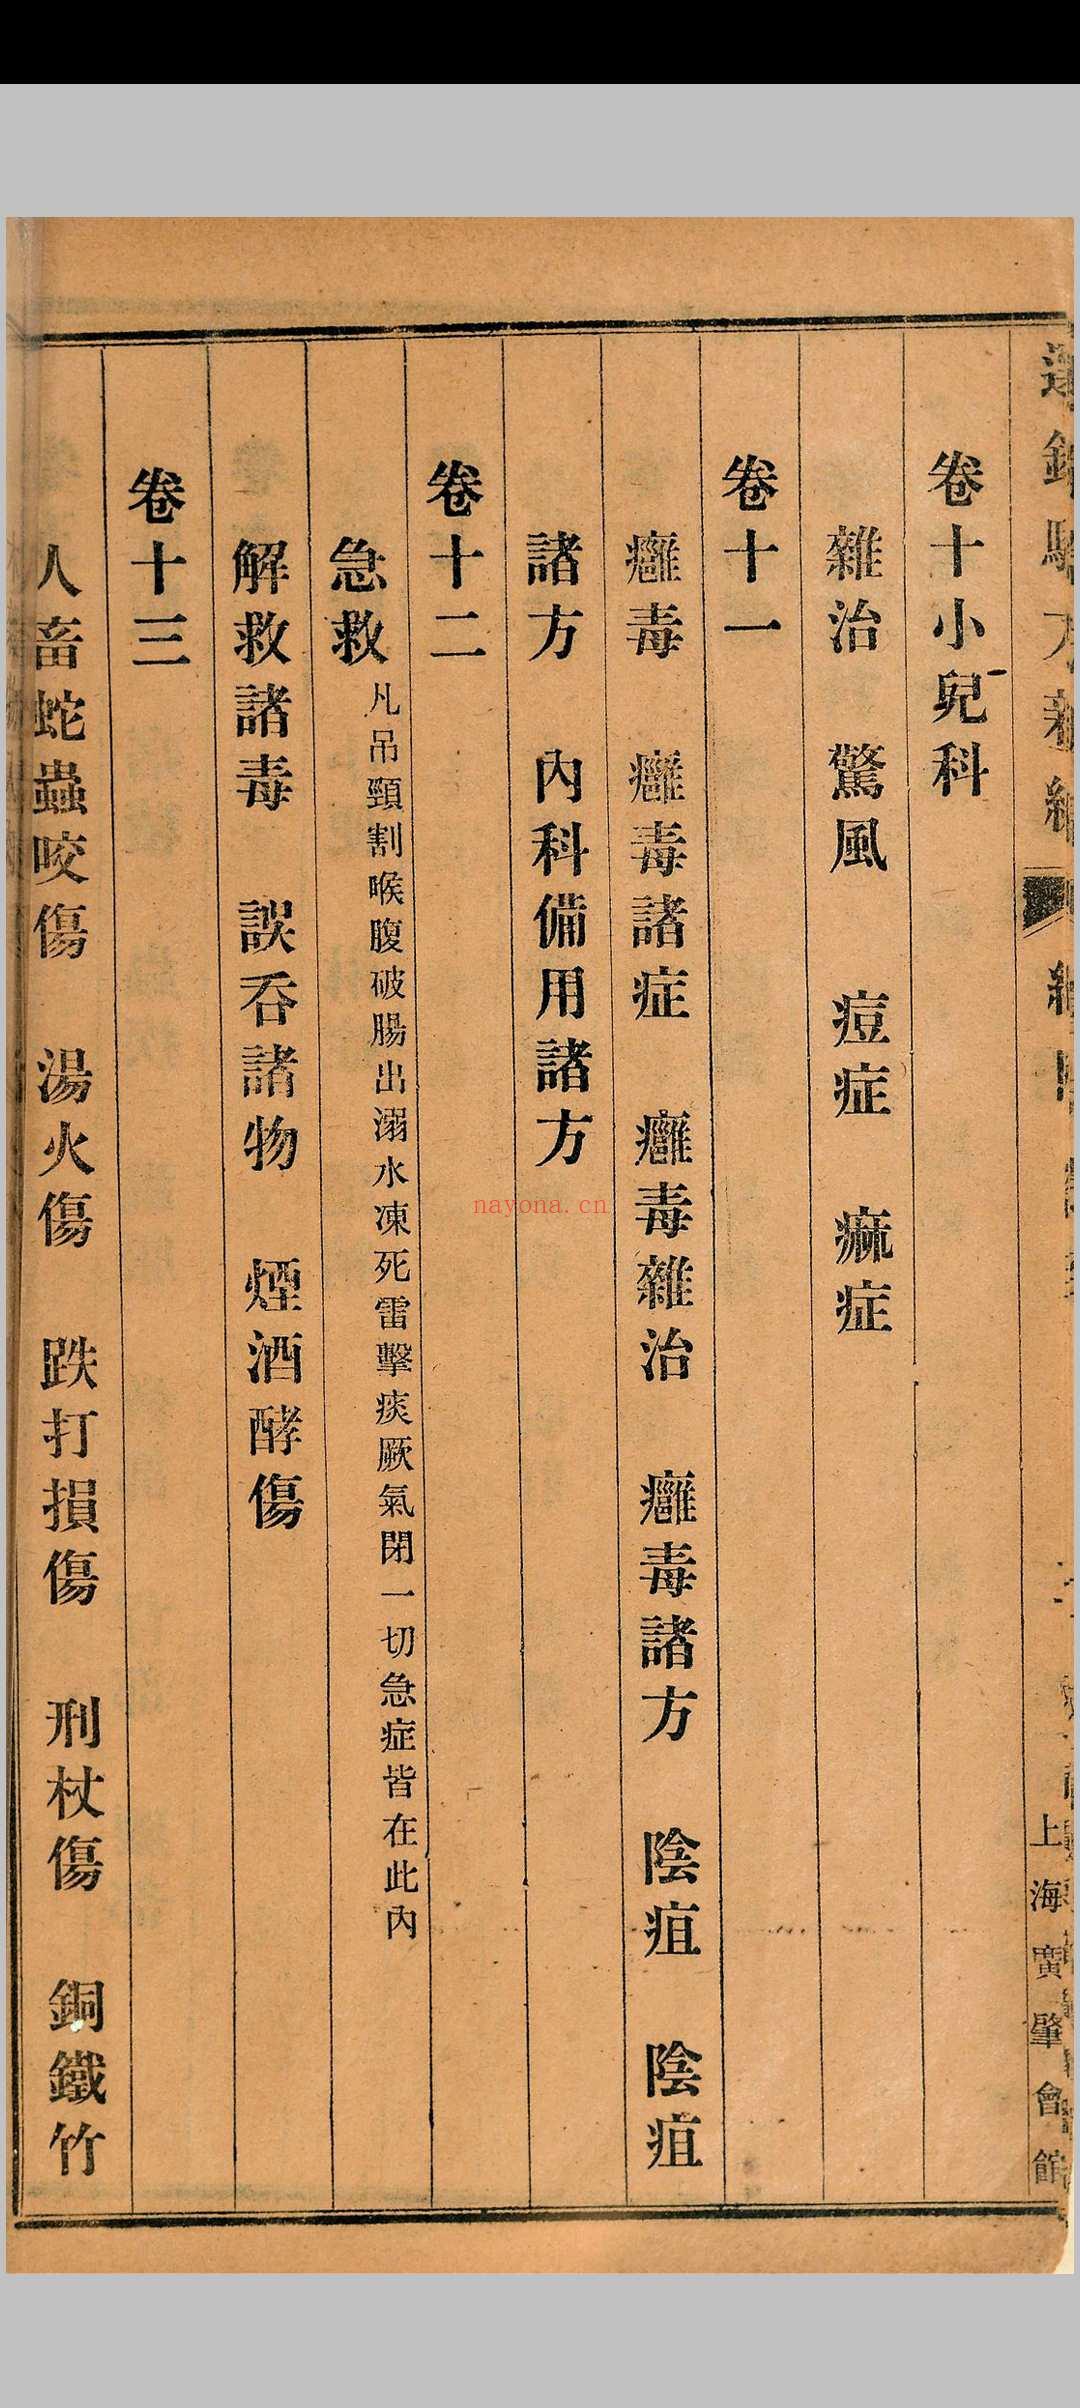 卷十小兒科
雜治　驚風　痘症　痲症
卷十一
癰毒　癰毒諸症　癰毒雜治　癰毒諸方　陰疽　陰疽
諸方　內科備用諸方
卷十二
急救凡吊頸割喉腹破腸出溺水凍死雷擊痰厥氣閉一切急症皆在此內
解救諸毒　誤吞諸物　煙酒酵傷
卷十三
人畜蛇蟲咬傷　湯火傷　跌打損傷　刑杖傷　銅鐵竹
上海廣肇會館
nayona.cn